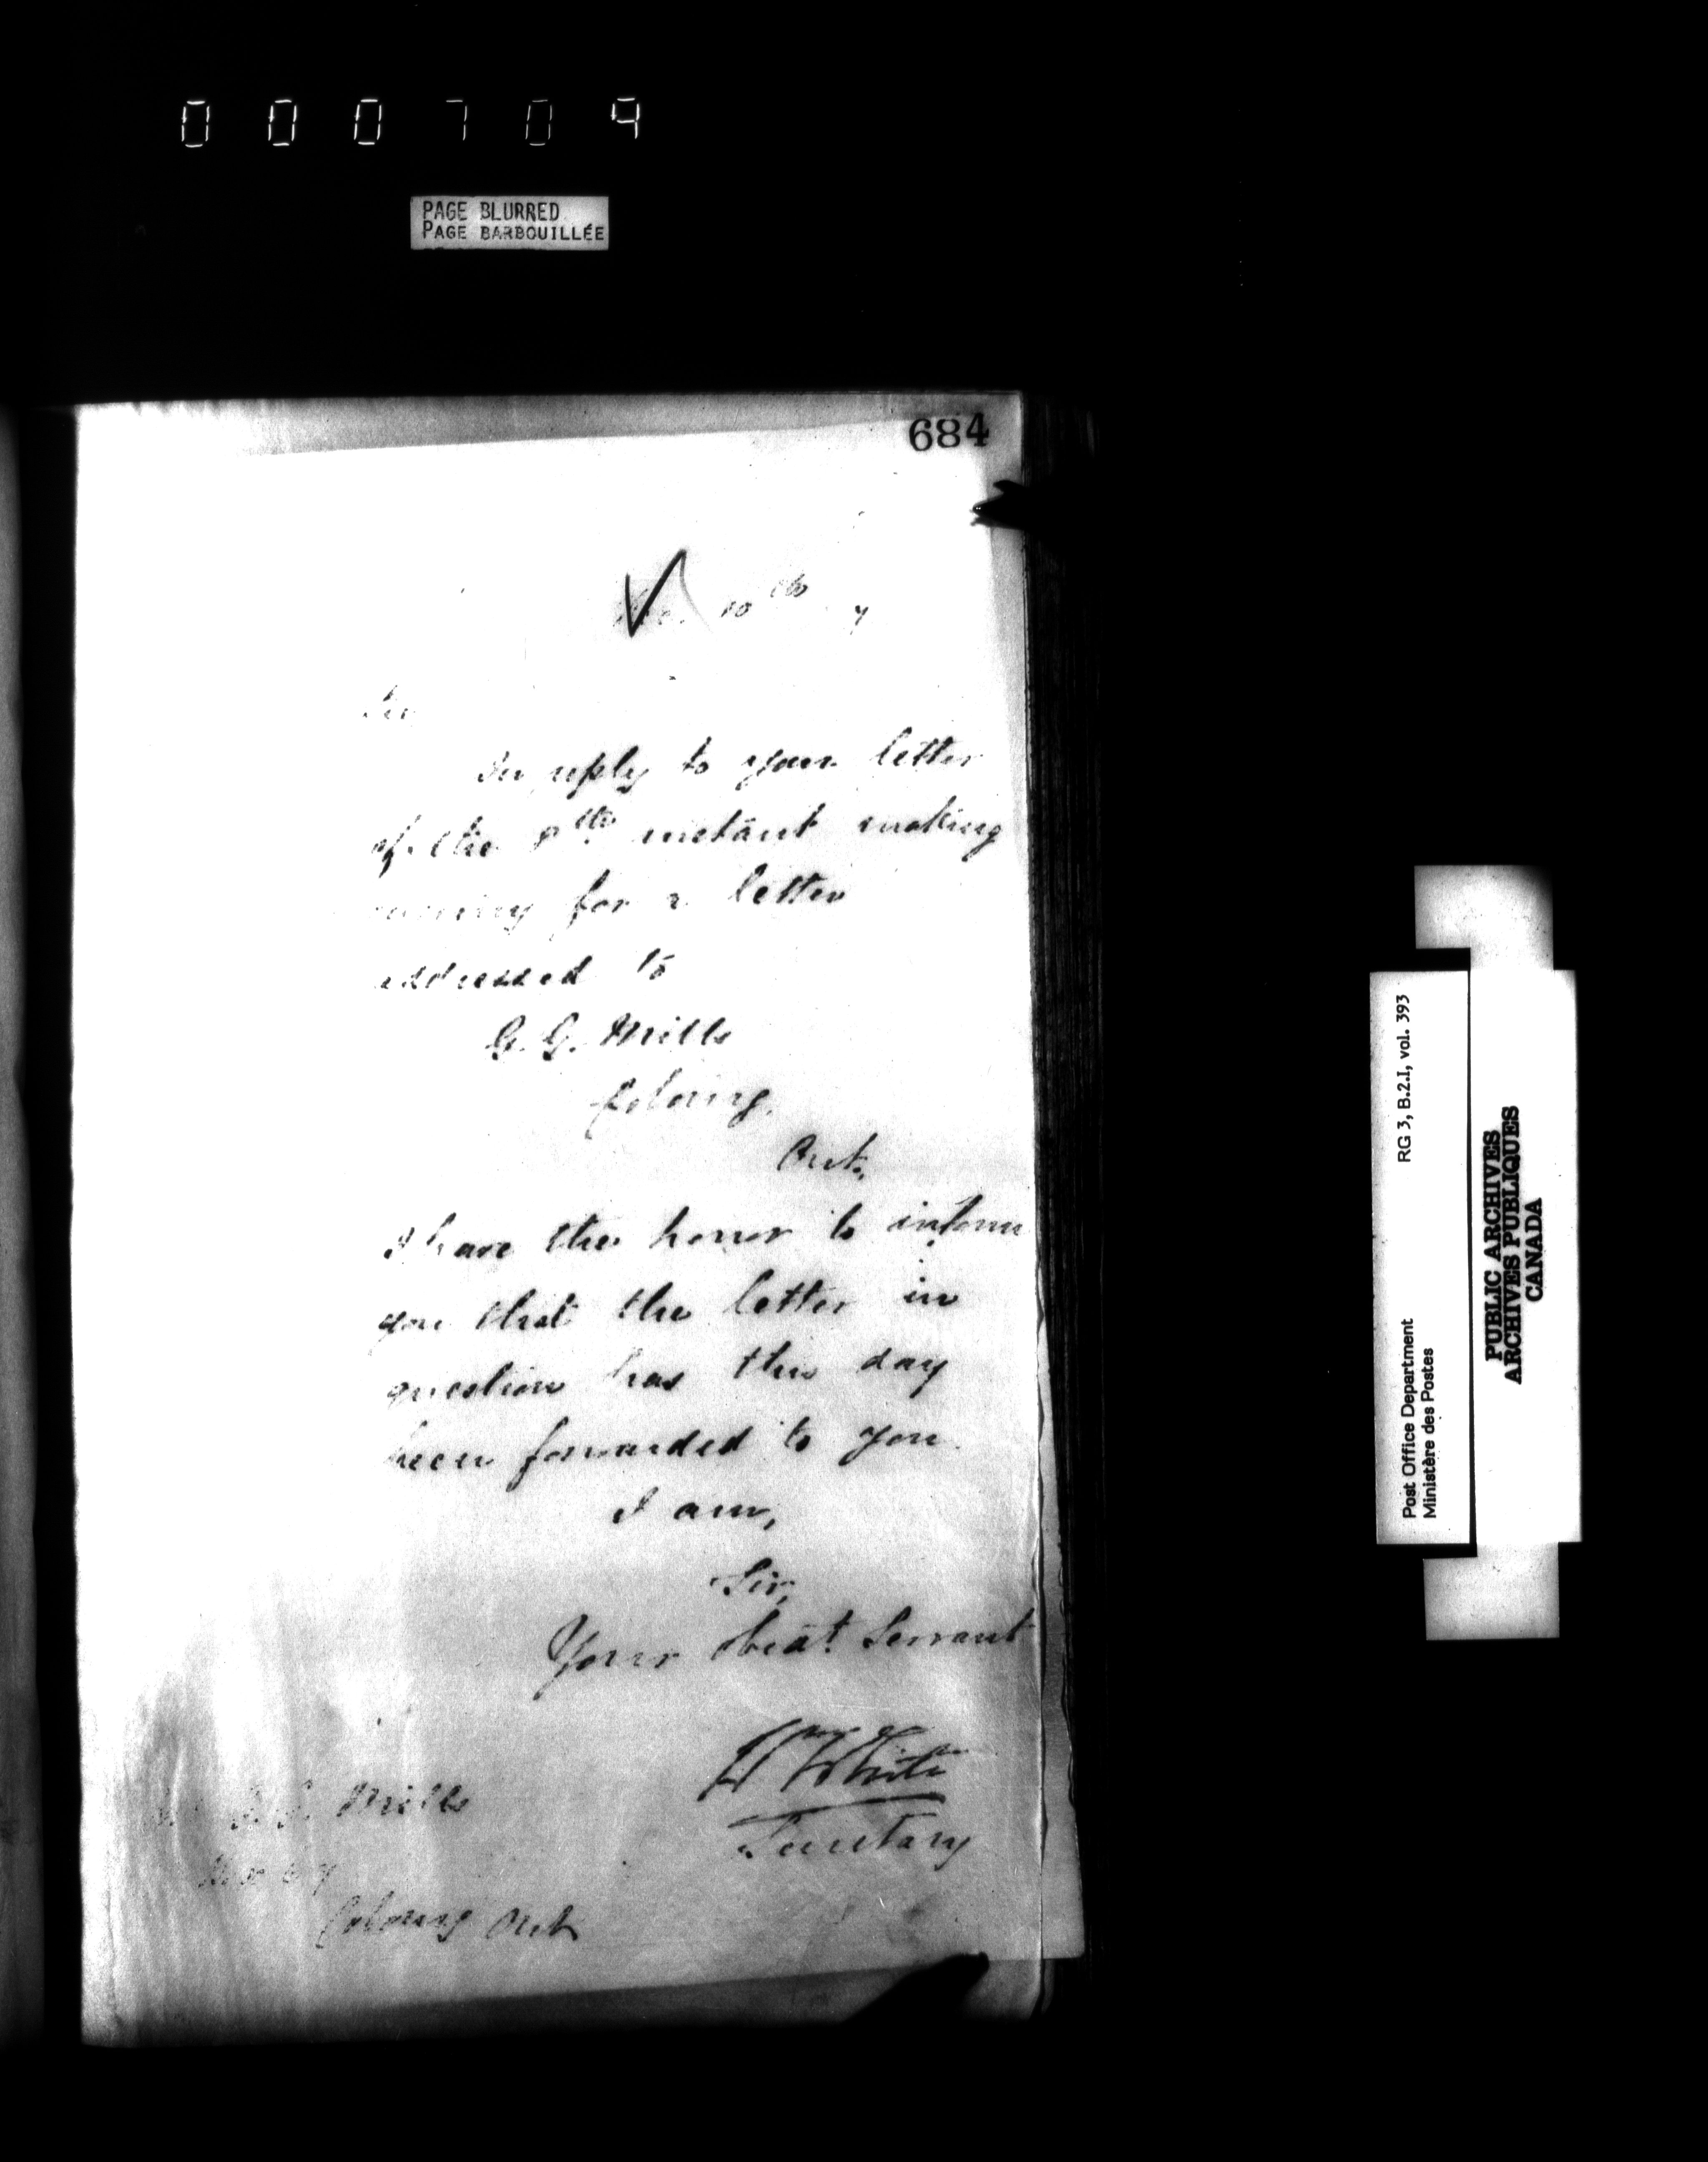 000709
PAGE BLURRED
PAGE BARBOUILLÉE
684
10th
Sir
In reply to your letter
of the 8th instant making
enquiry for a letter
addressed to
G. G. Mills
Cobourg.
Ont.
I have the honor to inform
you that the letter in
question has this day
been forwarded to you.
I am,
Sir,
Your Obedt. Servant
Wm White
Secretary
G. G. Mills
Box 67
Cobourg Ont
RG 3, B.2.I, vol. 393
Post Office Department
Ministère des Postes
PUBLIC ARCHIVES
ARCHIVES PUBLIQUES
CANADA